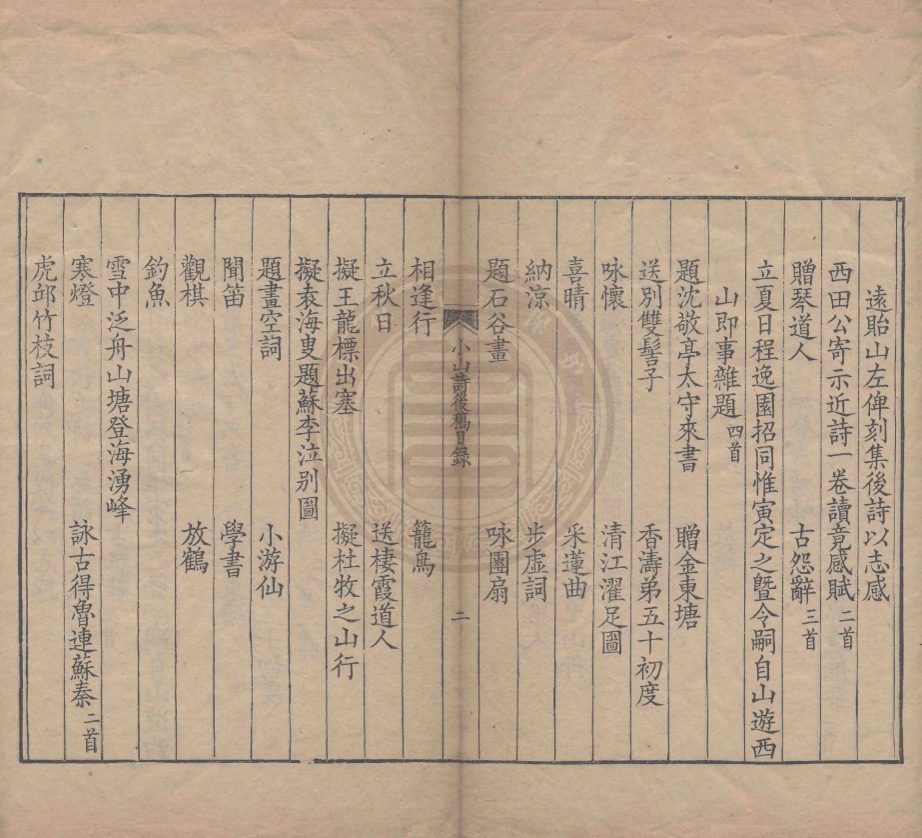 遠貽山左俾刻集後詩以志感
西田公寄示近詩一卷讀竟感賦二首
贈琴道人　古怨辭三首
立夏日程逸園招同惟寅定之曁令嗣自山遊西
山即事雜題四首
題沈敬亭太守來書　贈金東塘
送別雙髻子　香濤弟五十初度
咏懷　清江濯足圖
喜晴　采蓮曲
納涼　步虛詞
題石谷畫　咏團扇
小山詩後稿目錄　二
相逢行　籠鳥
立秋日　送棲霞道人
擬王龍標出塞　擬杜牧之山行
擬袁海叟題蘇李泣別圖
題畫空詞　小游仙
聞笛　學書
觀棋　放鶴
釣魚
雪中泛舟山塘登海湧峰
寒燈　詠古得魯連蘇秦二首
虎邱竹枝詞